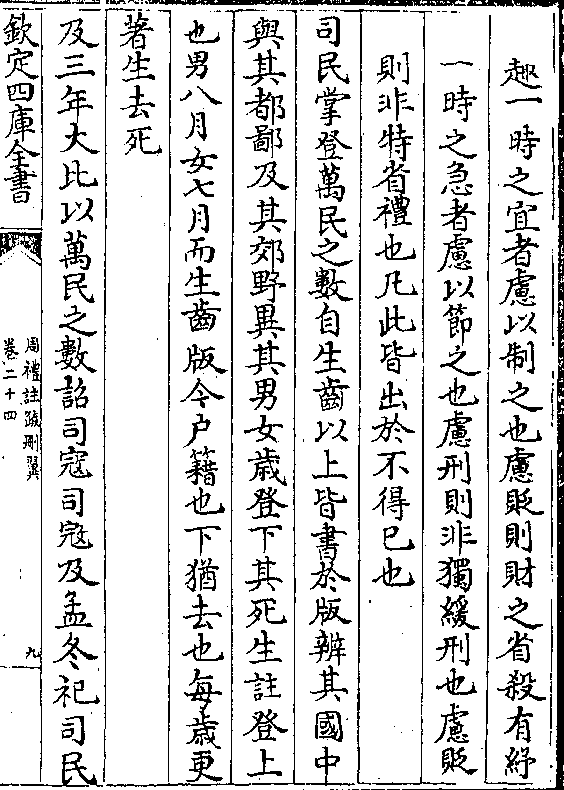 趣一時之宜者慮以制之也慮貶則財之省殺有紓
一時之急者慮以節之也慮刑則非獨緩刑也慮貶
則非特省禮也凡此皆出於不得已也
司民掌登萬民之數自生齒以上皆書於版辨其國中
與其都鄙及其郊野異其男女歲登下其死生註登上
也男八月女七月而生齒版今户籍也下猶去也每歲更
著生去死
及三年大比以萬民之數詔司寇司寇及孟冬祀司民
欽定四庫全書
周禮註疏刪翼
卷二十四
九